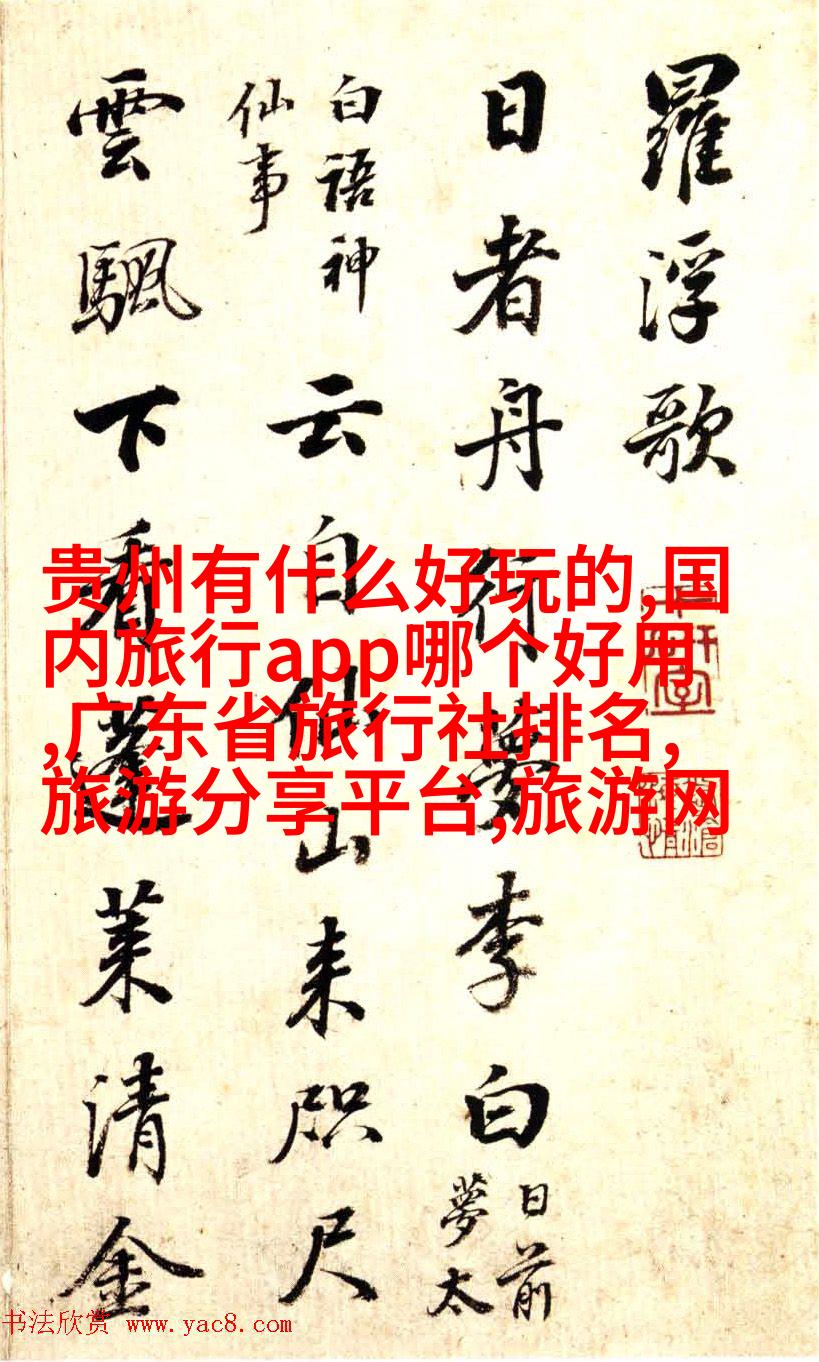 羅浮歌
日者舟行夢李白
日前夢太
白語神仙事
云自仙山来咫尺
雲颿下看蓬莱清金
贵州有什么好玩的,国
内旅行app哪个好用
,广东省旅行社排名,
旅游分享平台,旅游网
书法欣赏 www.yac8.com